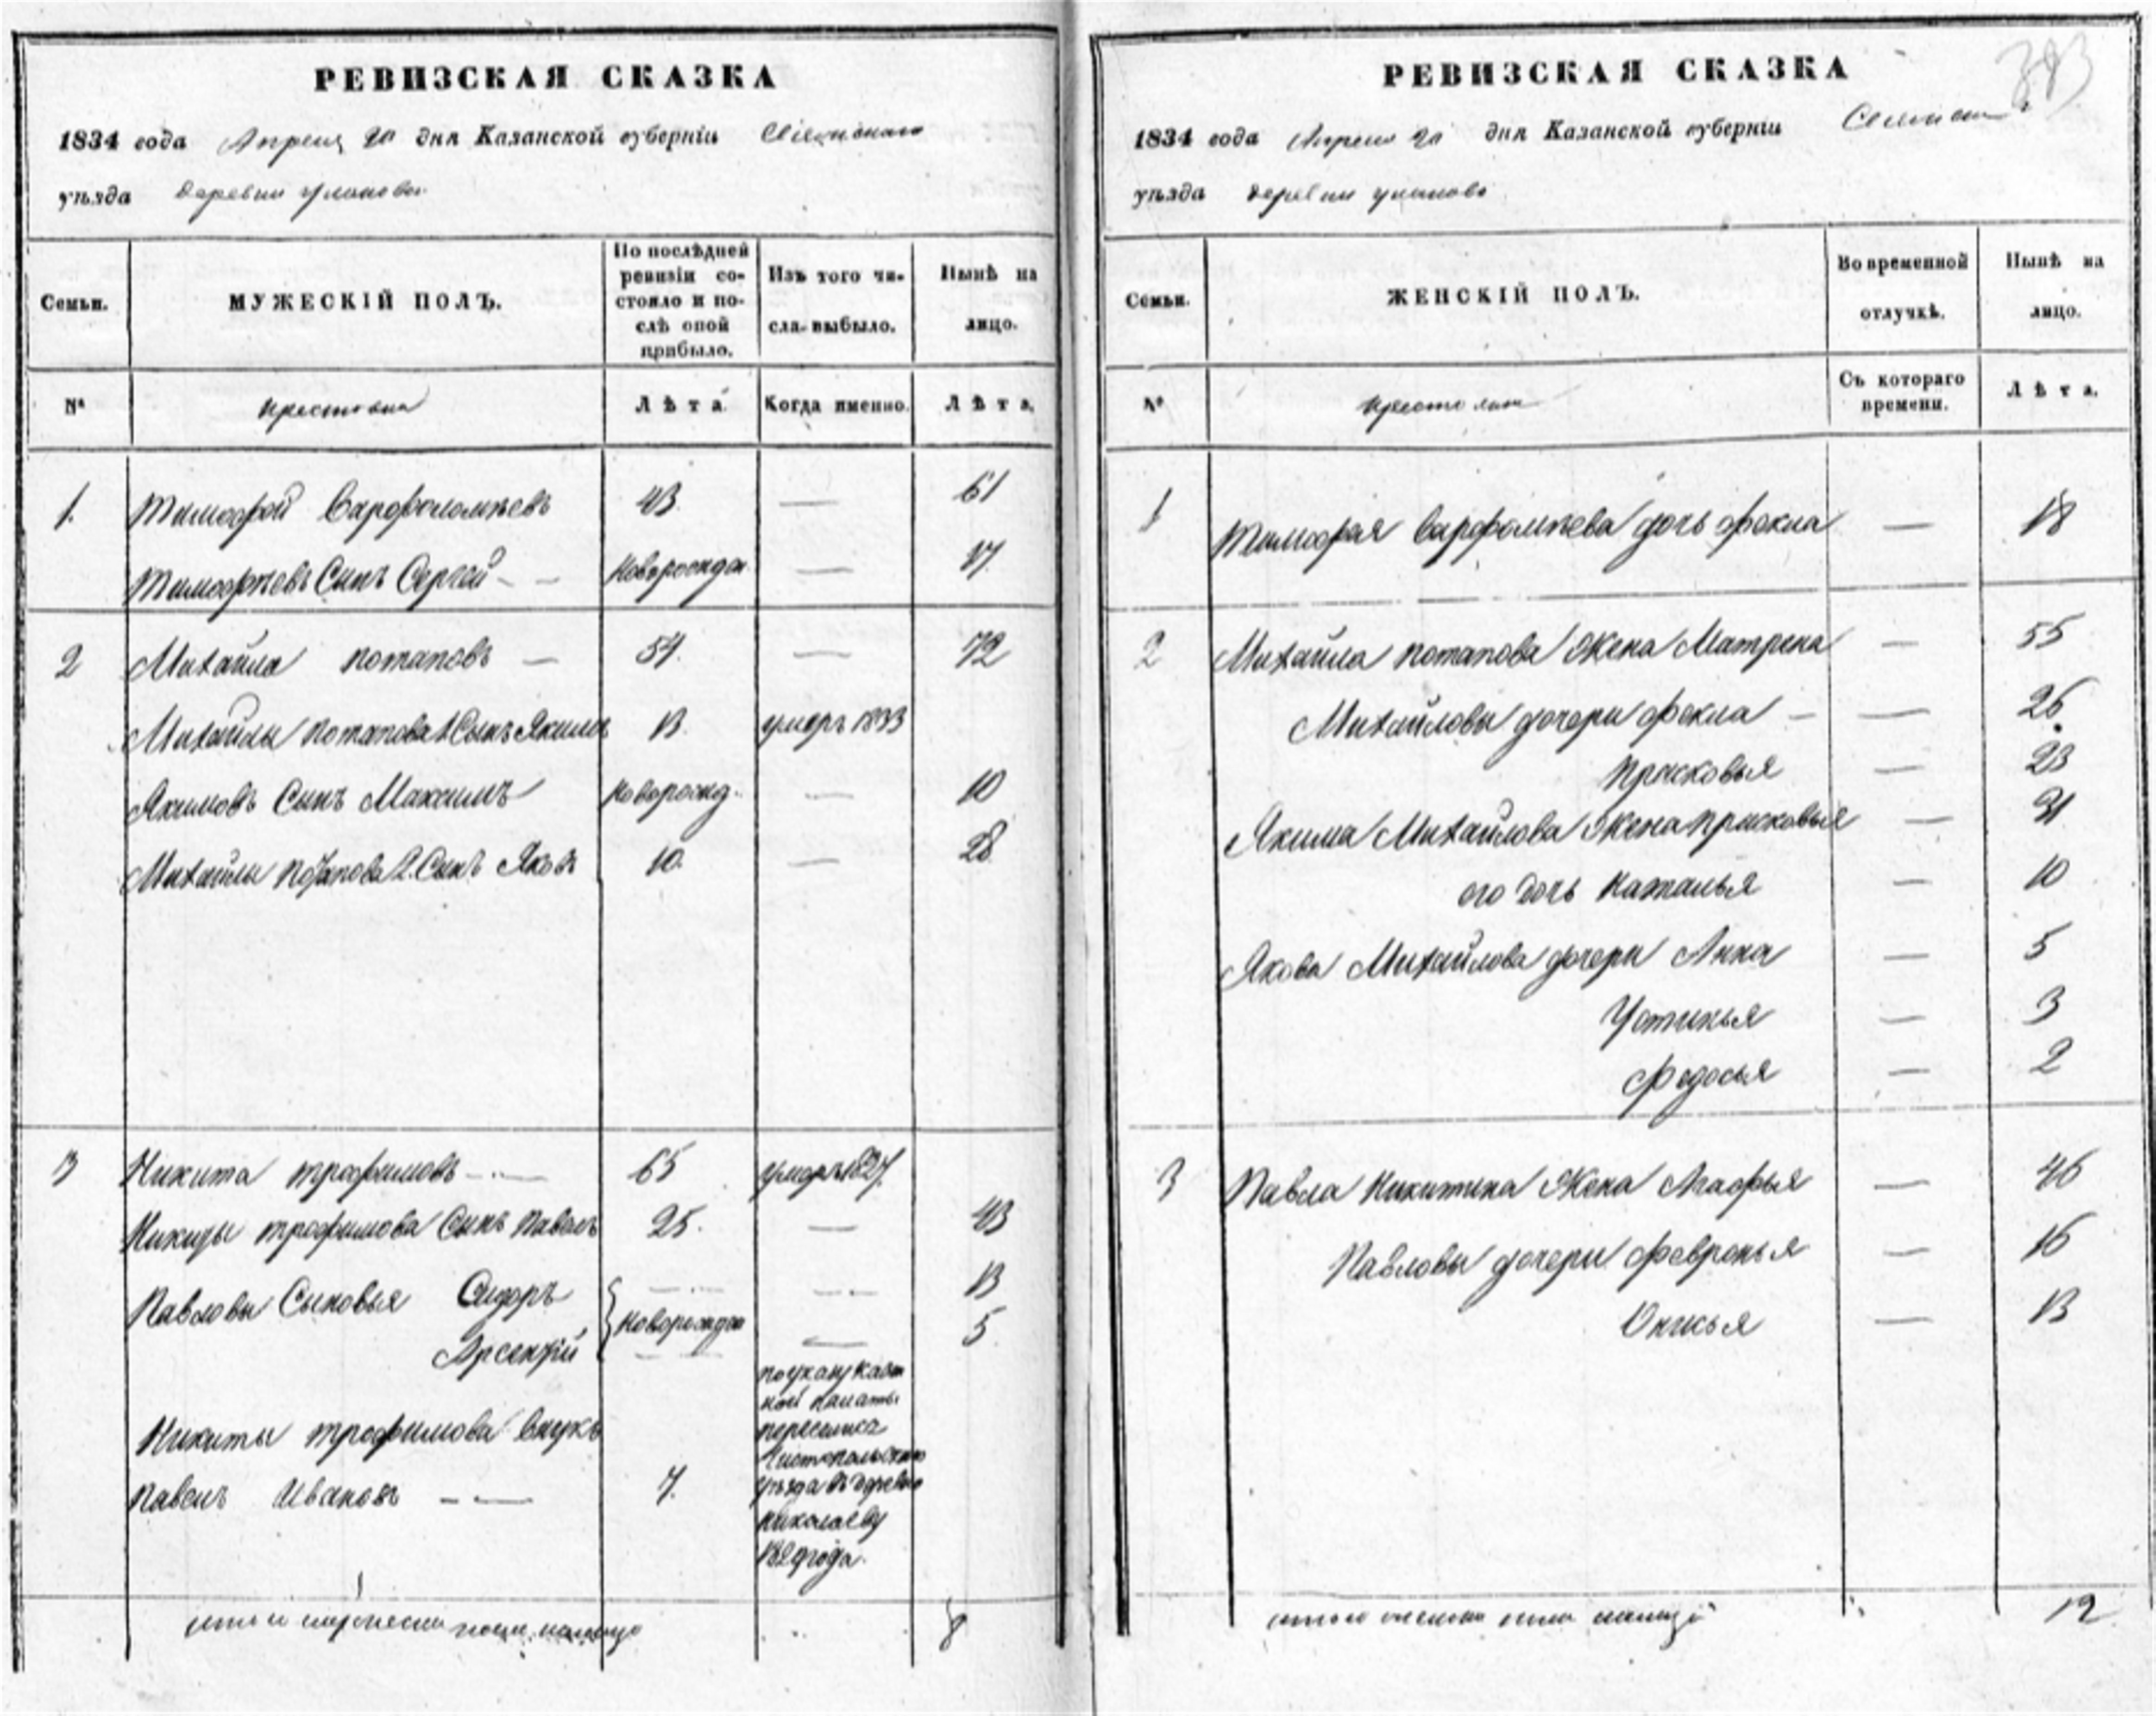 РЕВИЗСКАЯ СКАЗКА
1834 года Апреля 20 дня Казанской губерніи
уѣзда деревни
Семьи.
МУЖЕСКІЙ ПОЛЪ.
По послѣдней ревизіи состояло и послѣ оной прибыло.
Изъ того числа выбыло.
Нынѣ на лицо.
№
Лѣта.
Когда именно.
Лѣта.
1. Тимофей Варфоломѣевъ 43. — 61
Тимофѣевъ Сынъ Сергей — — новорожден — 17
2 Михайла потаповъ — 54. — 72
Михайлы потапова 1 Сынъ Якимъ 13. умеръ 1833
Якимовъ Сынъ Максимъ новорожд. — 10
Михайлы потапова 2. Сынъ Яковъ 10. — 28
3 Никита трофимовъ — — 65 умеръ 1827.
Никиты трофимова Сынъ павелъ 25. — 43
Павловы Сыновья Сидоръ — 13
новорожден
Арсентій — 5
Никиты трофимова внукъ
павелъ Ивановъ — — 7.
по указу казен
ной палаты
переселился
Чистопольскаго
уѣзда въ деревню
николаевку
года.
8
РЕВИЗСКАЯ СКАЗКА
1834 года Апреля 20 дня Казанской губерніи
уѣзда деревни
Семьи.
ЖЕНСКІЙ ПОЛЪ.
Во временной отлучкѣ.
Нынѣ на лицо.
№
Съ котораго времени.
Лѣта.
1 Тимофея Варфоломѣева дочь фекла — 18
2 Михайла потапова Жена Матрена — 55
Михайловы дочери фекла — — 26
прасковья — 23
Якима Михайлова Жена прасковья — 31
его дочь наталья — 10
Якова Михайлова дочери Анна — 5
Устинья — 3
федосья — 2
3 Павла Никитина Жена Агафья — 46
Павловы дочери февронья — 16
— 13
12